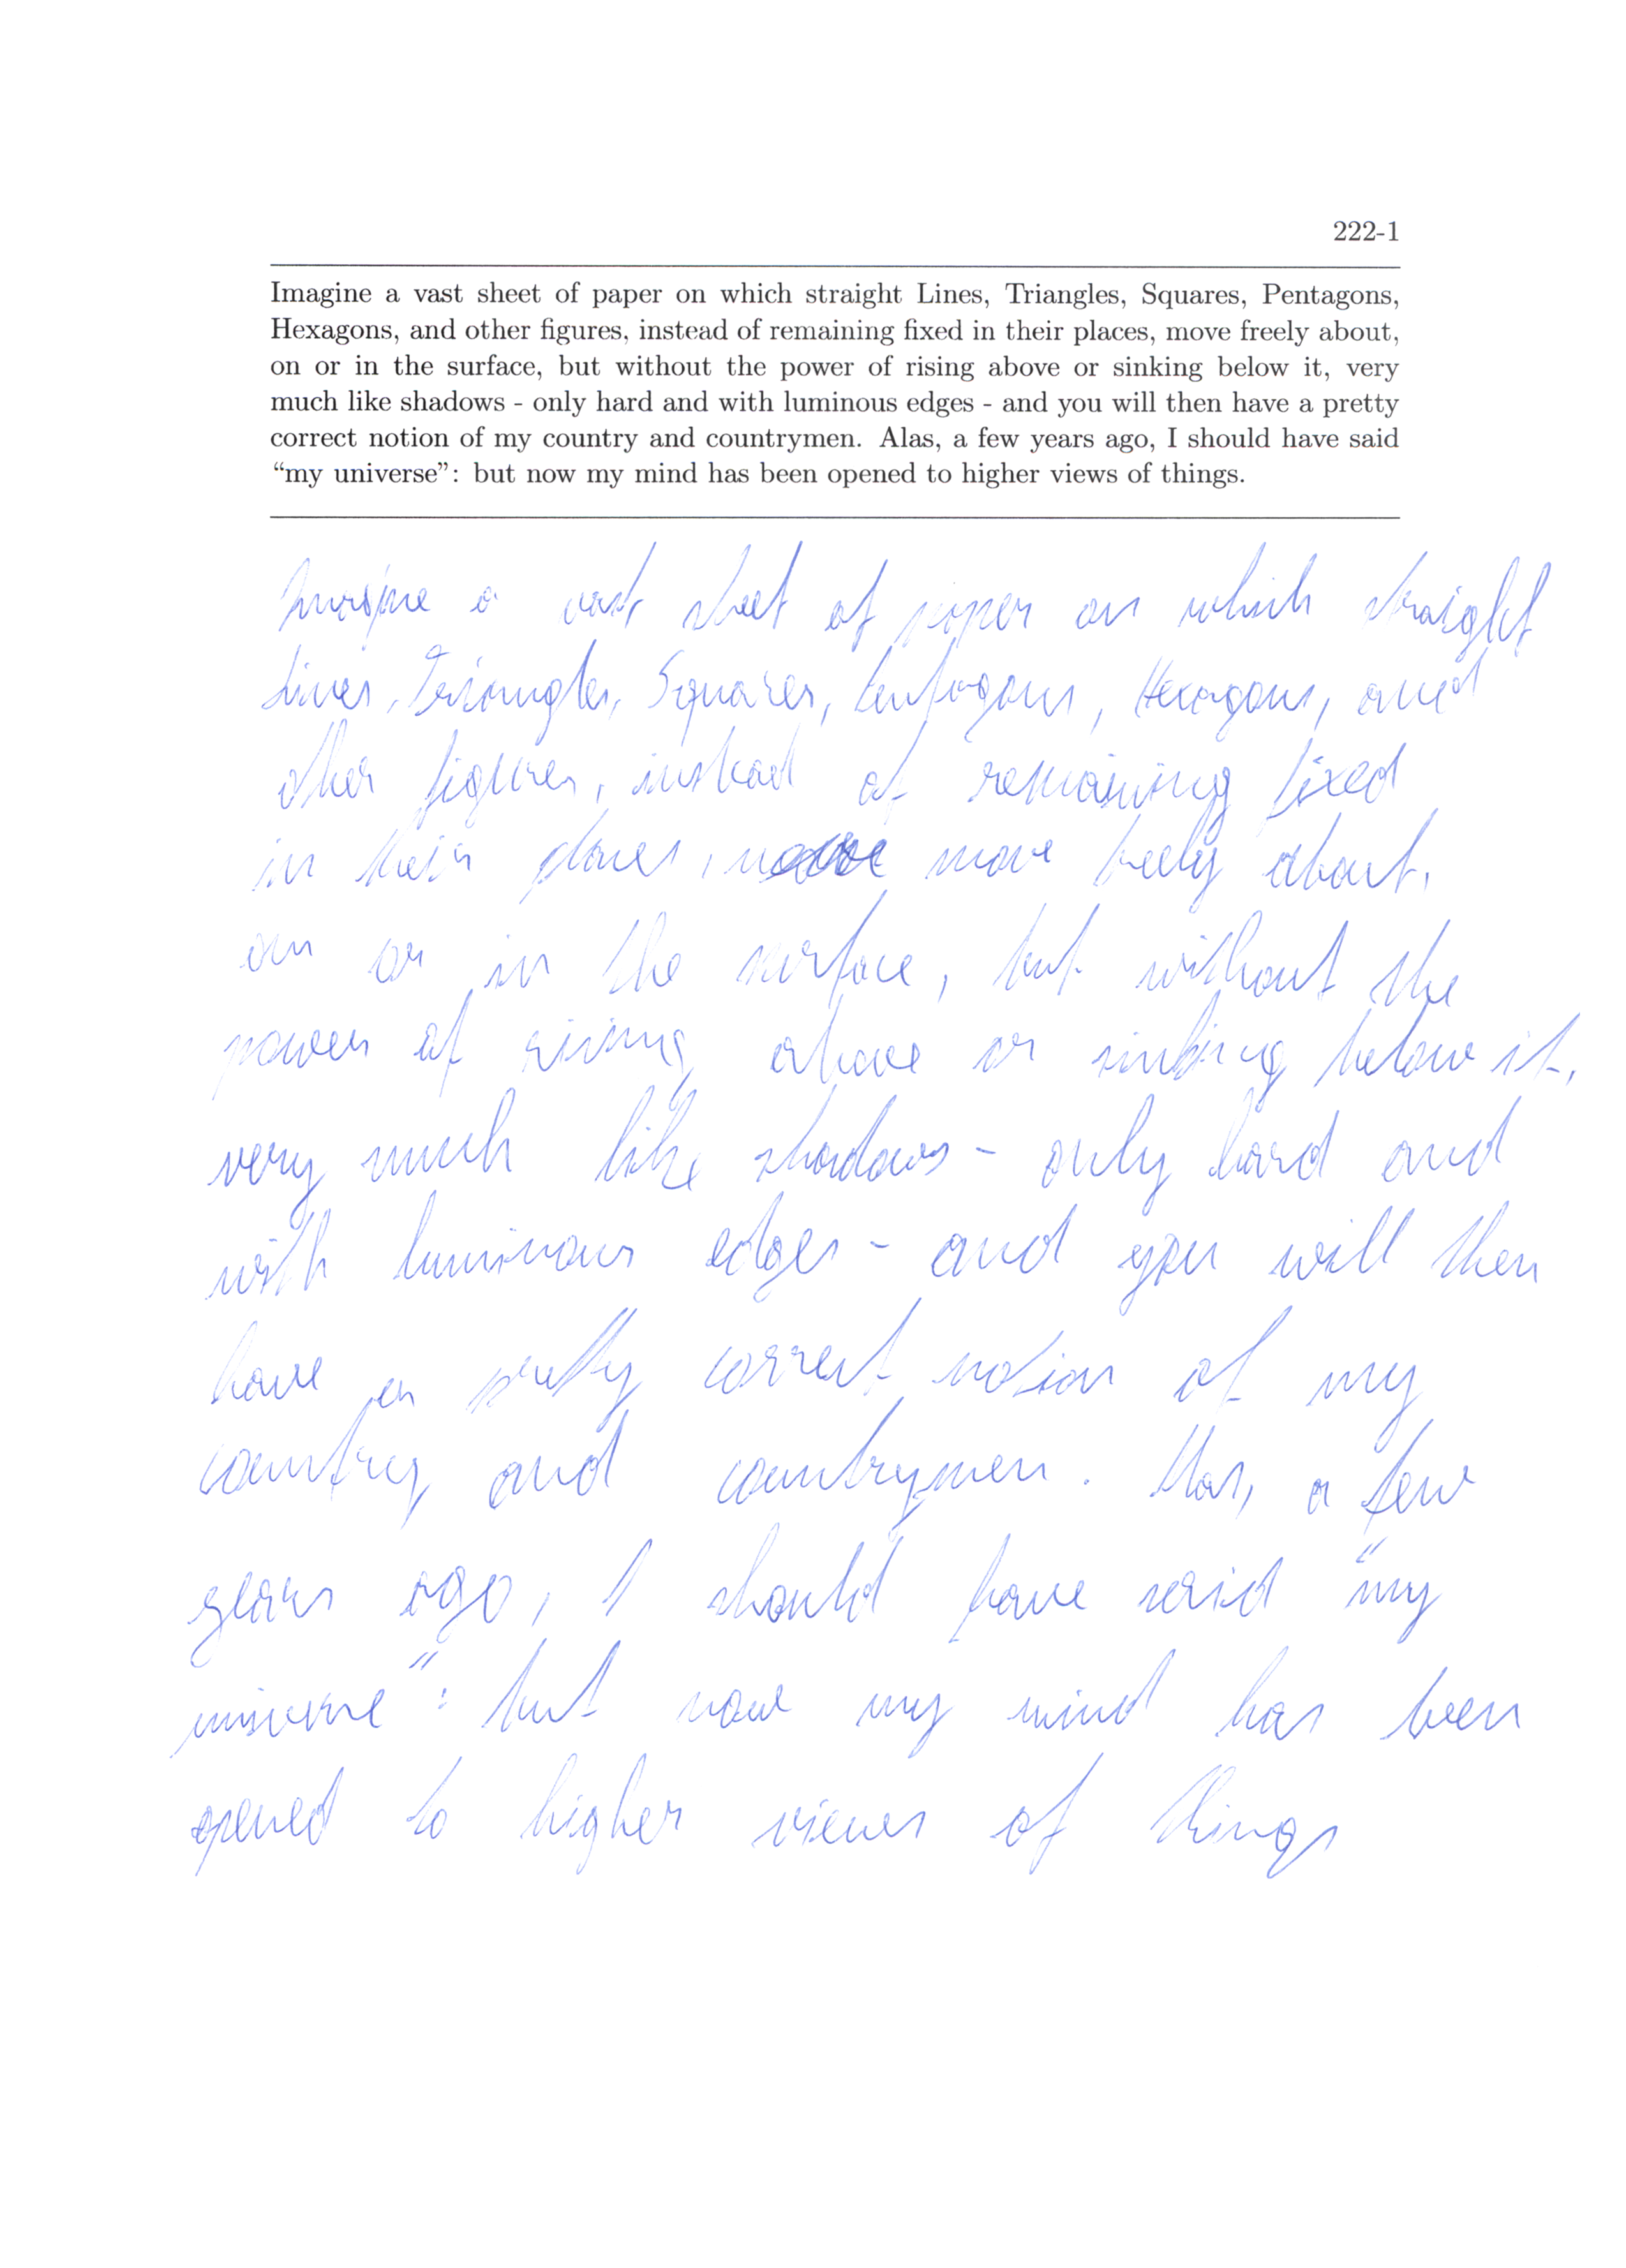 222-1
Imagine a vast sheet of paper on which straight Lines, Triangles, Squares, Pentagons,
Hexagons, and other figures, instead of remaining fixed in their places, move freely about,
on or in the surface, but without the power of rising above or sinking below it, very
much like shadows - only hard and with luminous edges - and you will then have a pretty
correct notion of my country and countrymen. Alas, a few years ago, I should have said
“my universe”: but now my mind has been opened to higher views of things.
Imagine a vast sheet of paper on which straight
Lines, Triangles, Squares, Pentagons, Hexagons, and
other figures, instead of remaining fixed
in their places, move freely about,
on or in the surface, but without the
power of rising above or sinking below it,
very much like shadows - only hard and
with luminous edges - and you will then
have a pretty correct notion of my
country and countrymen. Alas, a few
years ago, I should have said "my
universe": but now my mind has been
opened to higher views of things